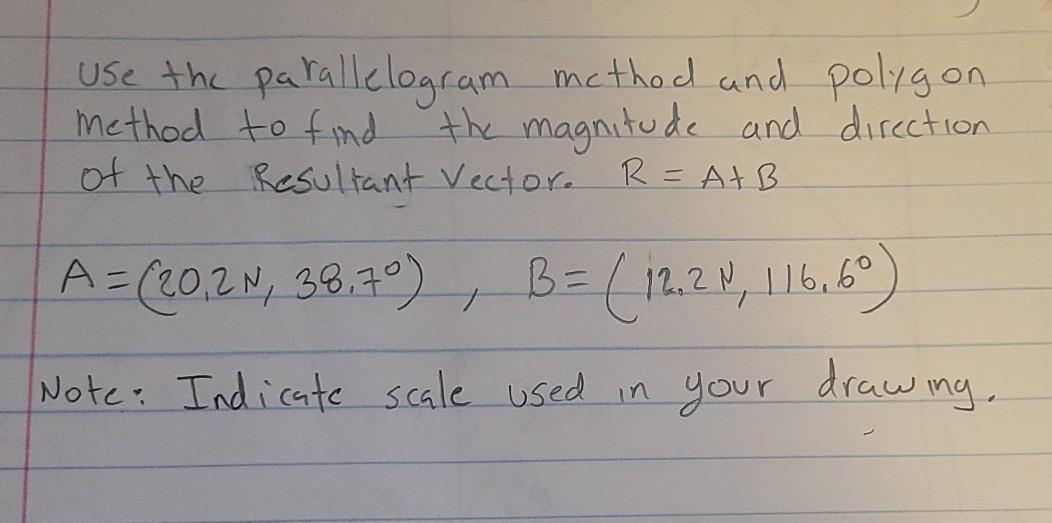 Use the parallelogram method and polygon
method to find the magnitude and direction
of the Resultant Vector. R = A+B
A = (20.2N, 38.7°) , B = (12.2N, 116.6°)
Note: Indicate scale used in your drawing.